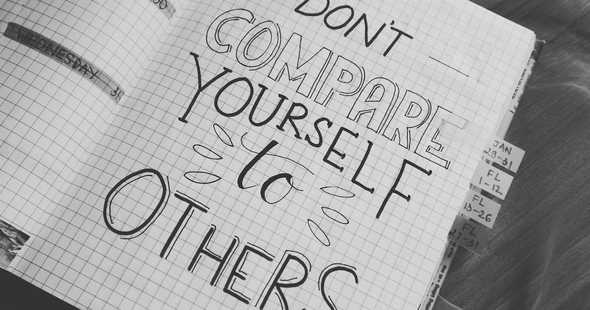 WEDNESDAY 31
DON'T
COMPARE
YOURSELF
to
OTHERS
JAN
28-31
FL
1-12
FL
13-26
FL